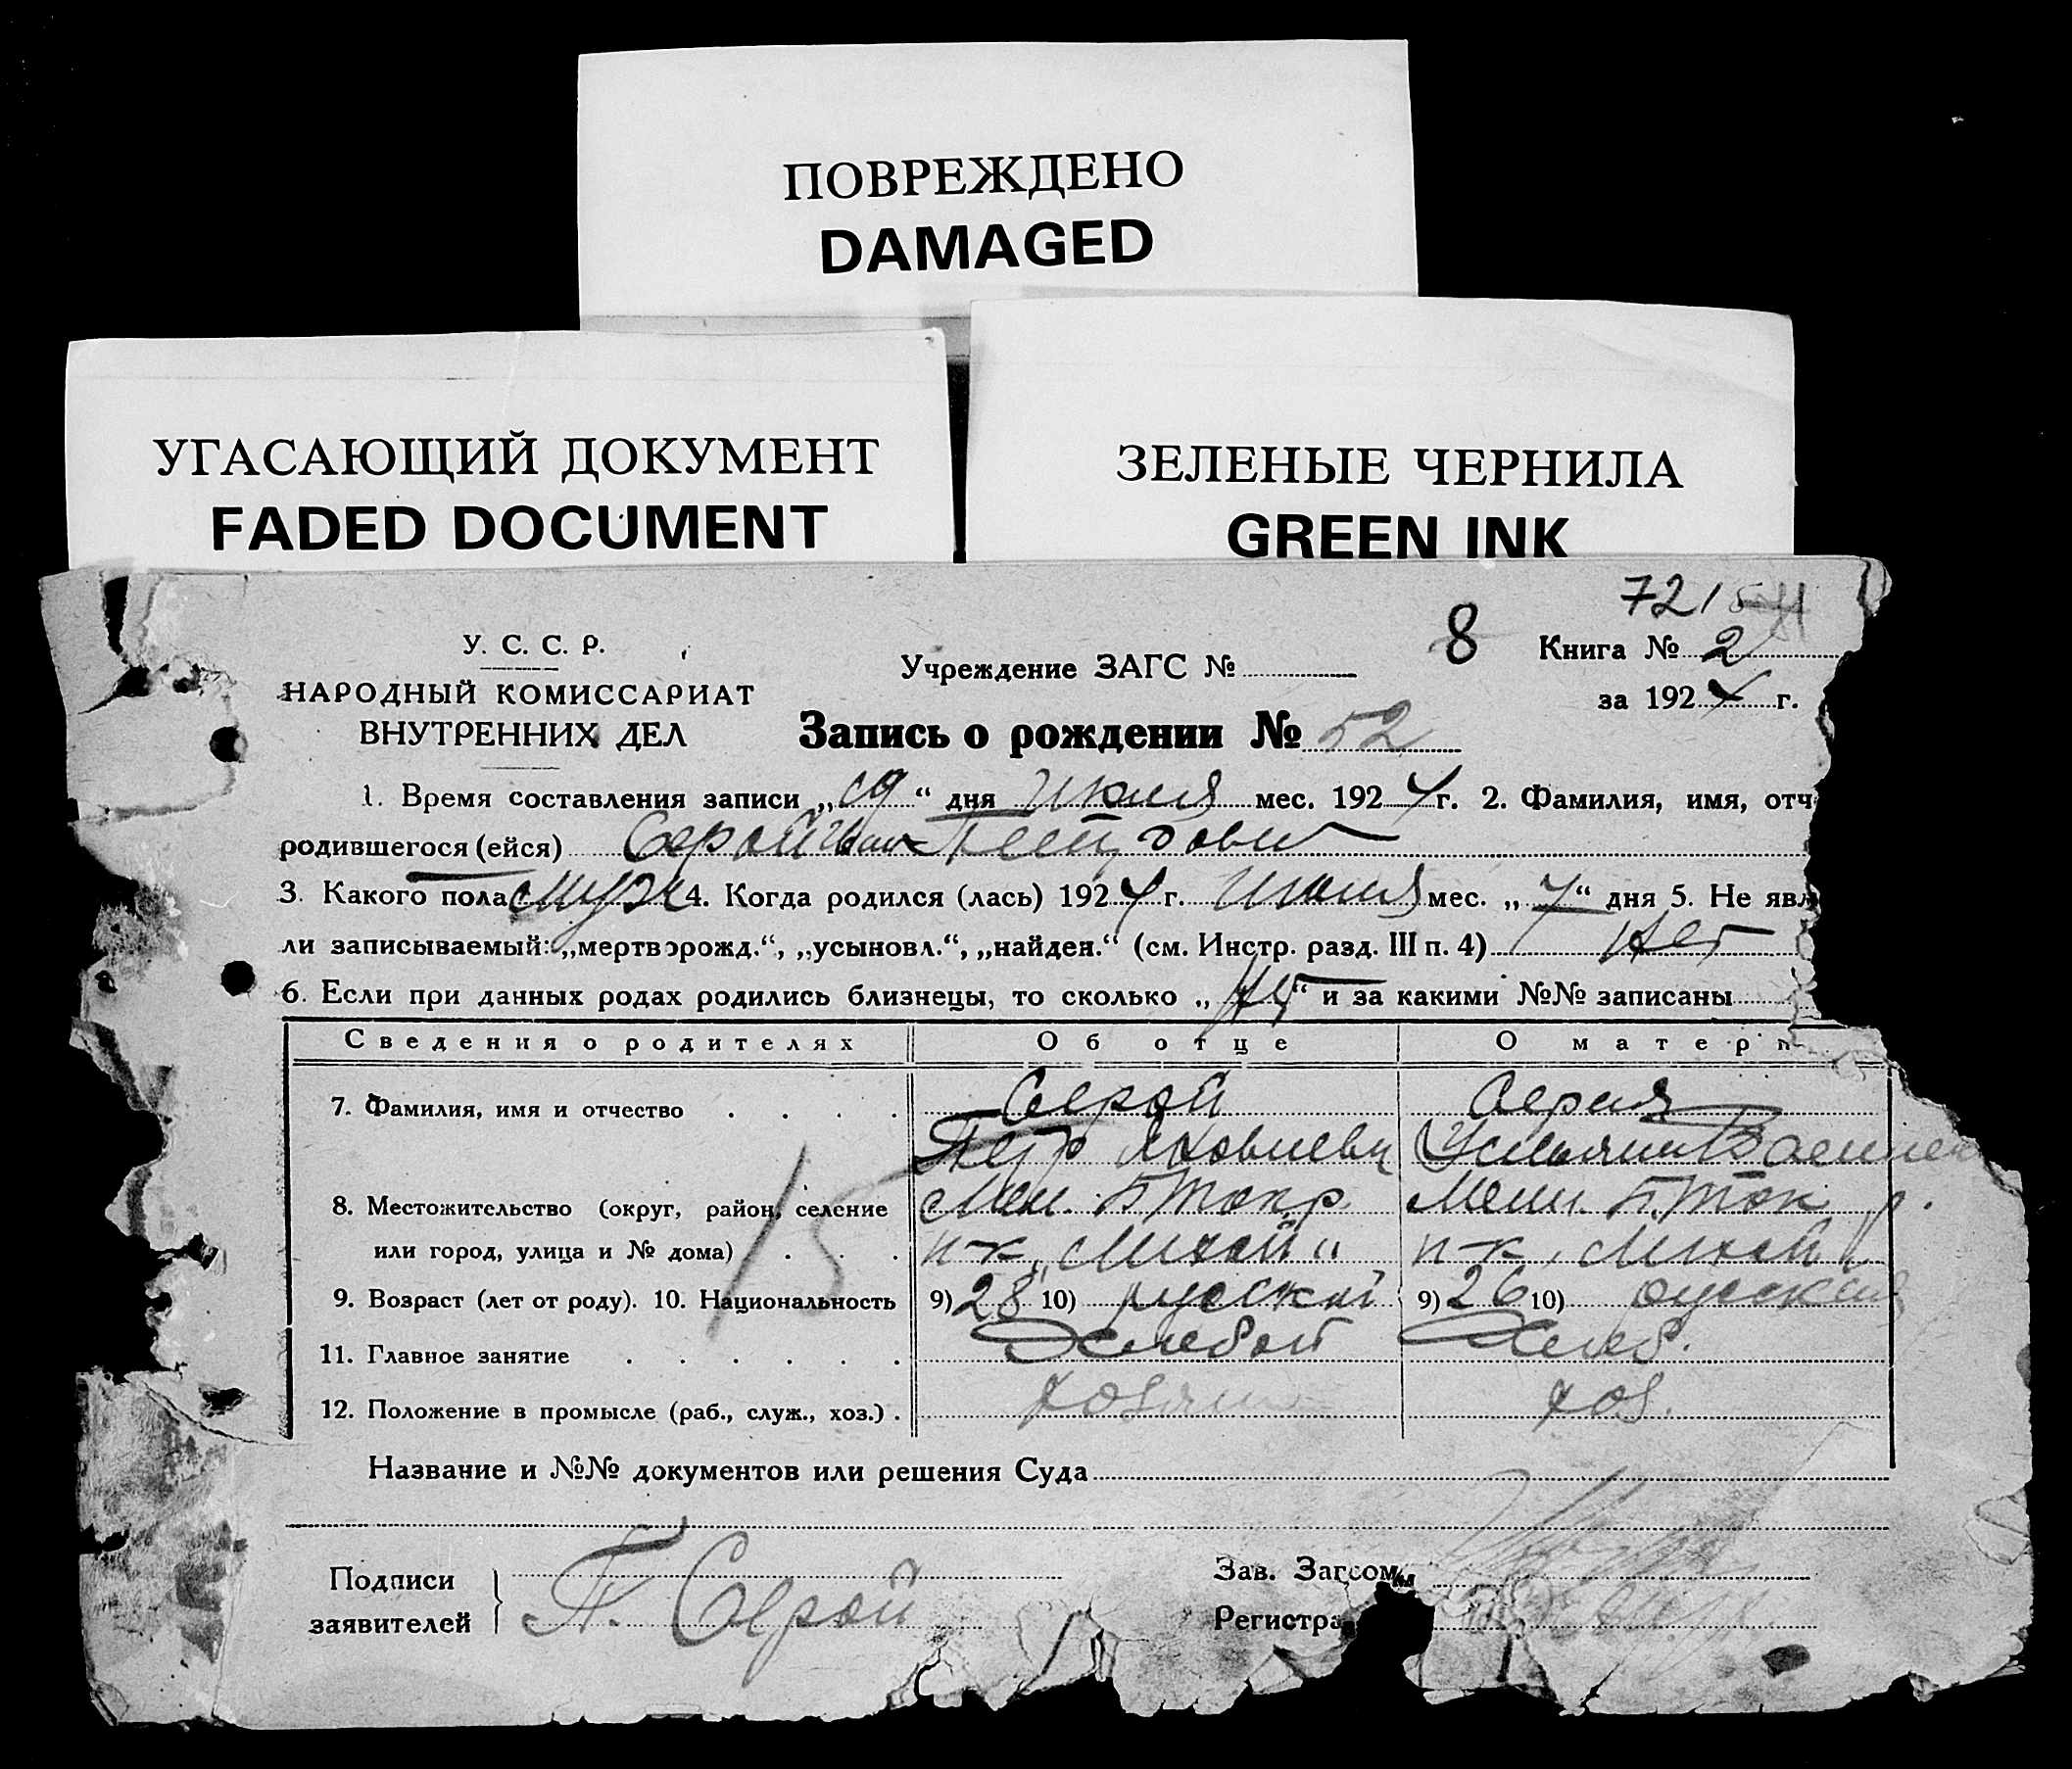 ПОВРЕЖДЕНО
DAMAGED
УГАСАЮЩИЙ ДОКУМЕНТ
FADED DOCUMENT
ЗЕЛЕНЫЕ ЧЕРНИЛА
GREEN INK
721
У. С. С. Р.
НАРОДНЫЙ КОМИССАРИАТ
ВНУТРЕННИХ ДЕЛ
Учреждение ЗАГС №
8
Книга № 2
за 1924 г.
Запись о рождении № 52
1. Время составления записи „ “ дня июля мес. 1924 г. 2. Фамилия, имя, отч
родившегося (ейся) Серой Иван Петрович
3. Какого пола муж 4. Когда родился (лась) 1924 г. Июля мес. „7“ дня 5. Не явл
ли записываемый: „мертворожд.“, „усыновл.“, „найден.“ (см. Инстр. разд. III п. 4) Нет
6. Если при данных родах родились близнецы, то сколько „Нет“ и за какими №№ записаны
Сведения о родителях Об отце О матери
7. Фамилия, имя и отчество Серой Серая
Петр Яковлевич Ульяна
8. Местожительство (округ, район, селение Мел. Б Ток р. Мели. Б. Ток р.
или город, улица и № дома) п-к „Михай“ п-к „Михай
9. Возраст (лет от роду). 10. Национальность 9) 28 10) русский 9) 26 10) русская
11. Главное занятие Хлебоп Хлеб.
12. Положение в промысле (раб., служ., хоз.) хозяин хоз.
Название и №№ документов или решения Суда
Подписи заявителей П. Серой
Зав. Загсом
Регистра
15